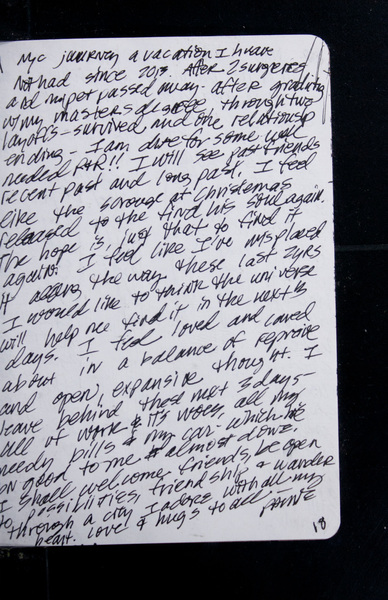 NYC journey a vacation I have
Not had since 2013. After 2 surgeries
and my pet passed away - after grading
w/ my masters degree through two
layoffs - survived, and one relationship
ending - I am due for some well
needed R&R!! I will see past friends
recent past and long past. I feel
like the scrouge at Christmas
released to the find his soul again.
The hope is, just that to find it
again. I feel like I've misplaced
it along the way these last 2yrs
I would like to think the universe
will help me find it in the next 3
days. I feel loved and cared
about in a balance of reprove
and open, expansive thought. I
leave behind these next 3 days -
all of work & its woes, all my
needy pills & my car - which be
on good to me & almost done.
I shall welcome friends, be open
to possibilities, friendship & wander
through a city I adore with all my
heart. Love & hugs to all -
18